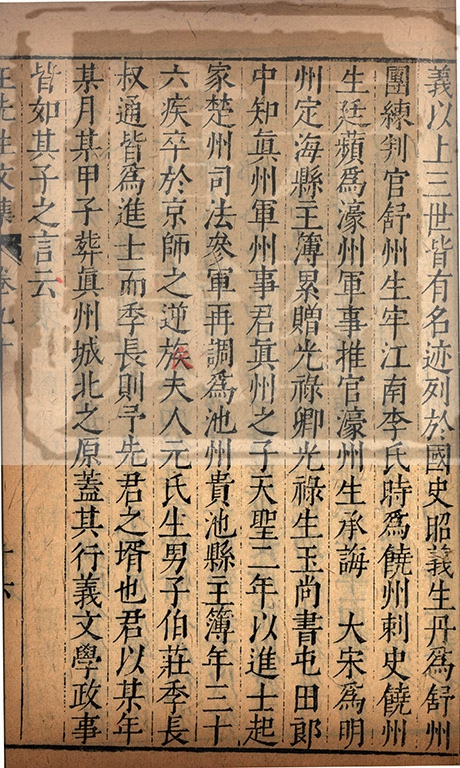 義以上三世皆有名迹列於國史昭義生丹爲舒州
團練判官舒州生牢江南李氏時爲饒州刺史饒州
生廷蘋爲濠州軍事推官濠州生承誨 大宋爲明
州定海縣主簿累贈光祿卿光祿生玉尚書屯田郎
中知眞州軍州事君眞州之子天聖二年以進士起
家楚州司法參軍再調爲池州貴池縣主簿年三十
六疾卒於京師之逆族夫人元氏生男子伯莊季長
叔通皆爲進士而季長則予先君之壻也君以某年
某月某甲子葬眞州城北之原蓋其行義文學政事
皆如其子之言云
先生文集 卷九十
十六